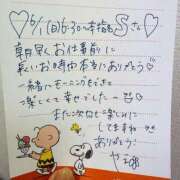 ♡6/1(日)6:30〜本指名Sさん♡
朝早くお仕事前に
長いお時間本当にありがとう
一緒にモーニングもできて
楽しくて幸せでした
また次回も楽しみに
してますね
ありがとう